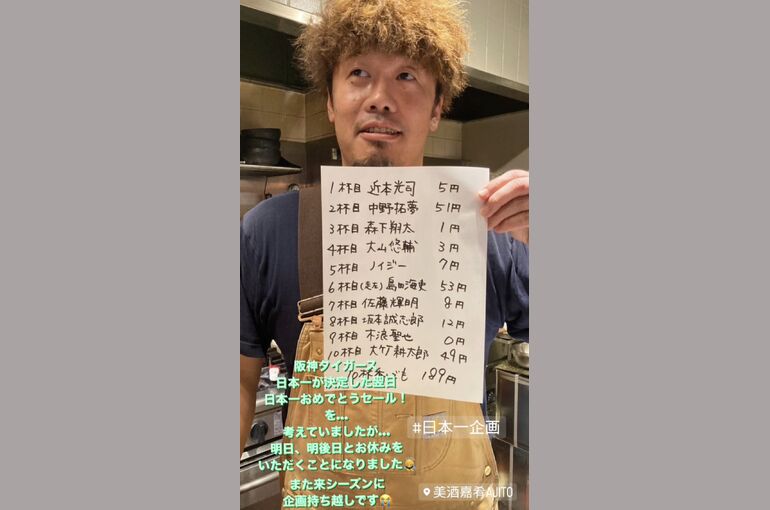 1杯目 近本光司 5円
2杯目 中野拓夢 51円
3杯目 森下翔太 1円
4杯目 大山悠輔 3円
5杯目 ノイジー 7円
6杯目(走左)島田海吏 53円
7杯目 佐藤輝明 8円
8杯目 坂本誠志郎 12円
9杯目 木浪聖也 0円
10杯目 大竹耕太郎 49円
189円
阪神タイガース
日本一が決定した翌日
日本一おめでとうセール！
を…
考えていましたが…
明日、明後日とお休みを
いただくことになりました🙇
また来シーズンに
企画持ち越しです😭
#日本一企画
美酒嘉肴AJITO